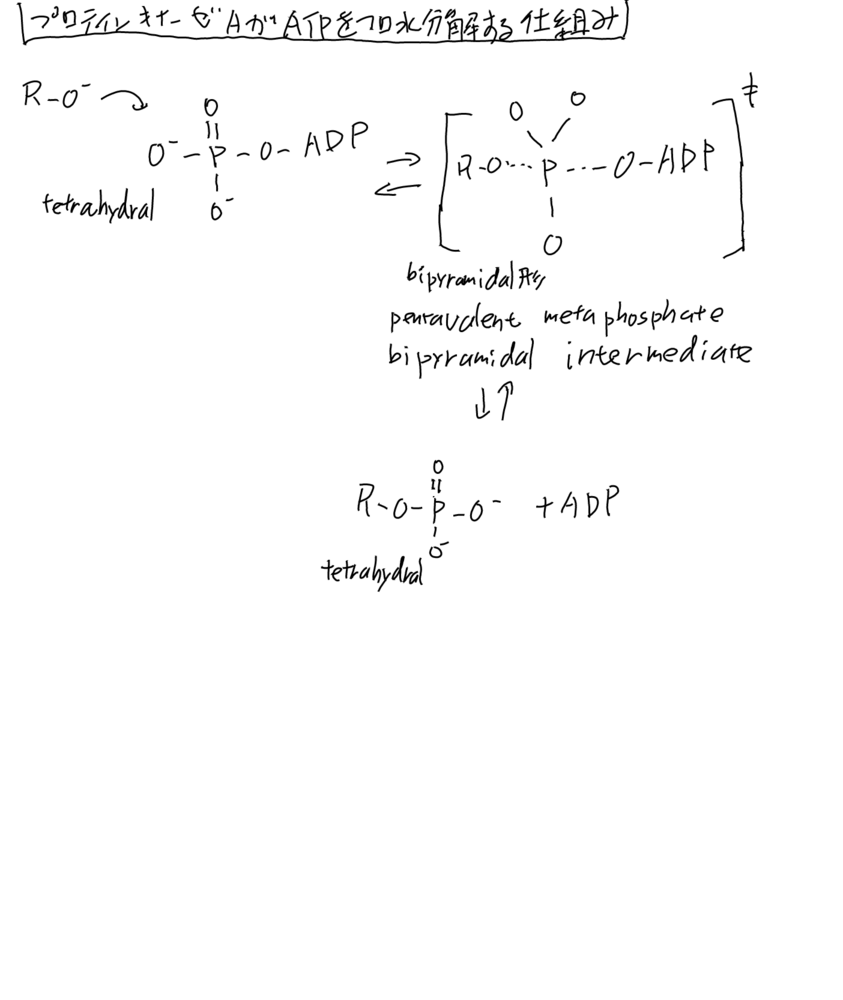 プロテインキナーゼAがATPを加水分解する仕組み
R-O⁻
O
O⁻-P-O-ADP
O⁻
tetrahydral
⇌
[R-O···P···O-ADP]‡
O O
O
bipyramidal形
pentavalent metaphosphate
bipyramidal intermediate
↓↑
O
R-O-P-O⁻ +ADP
O⁻
tetrahydral